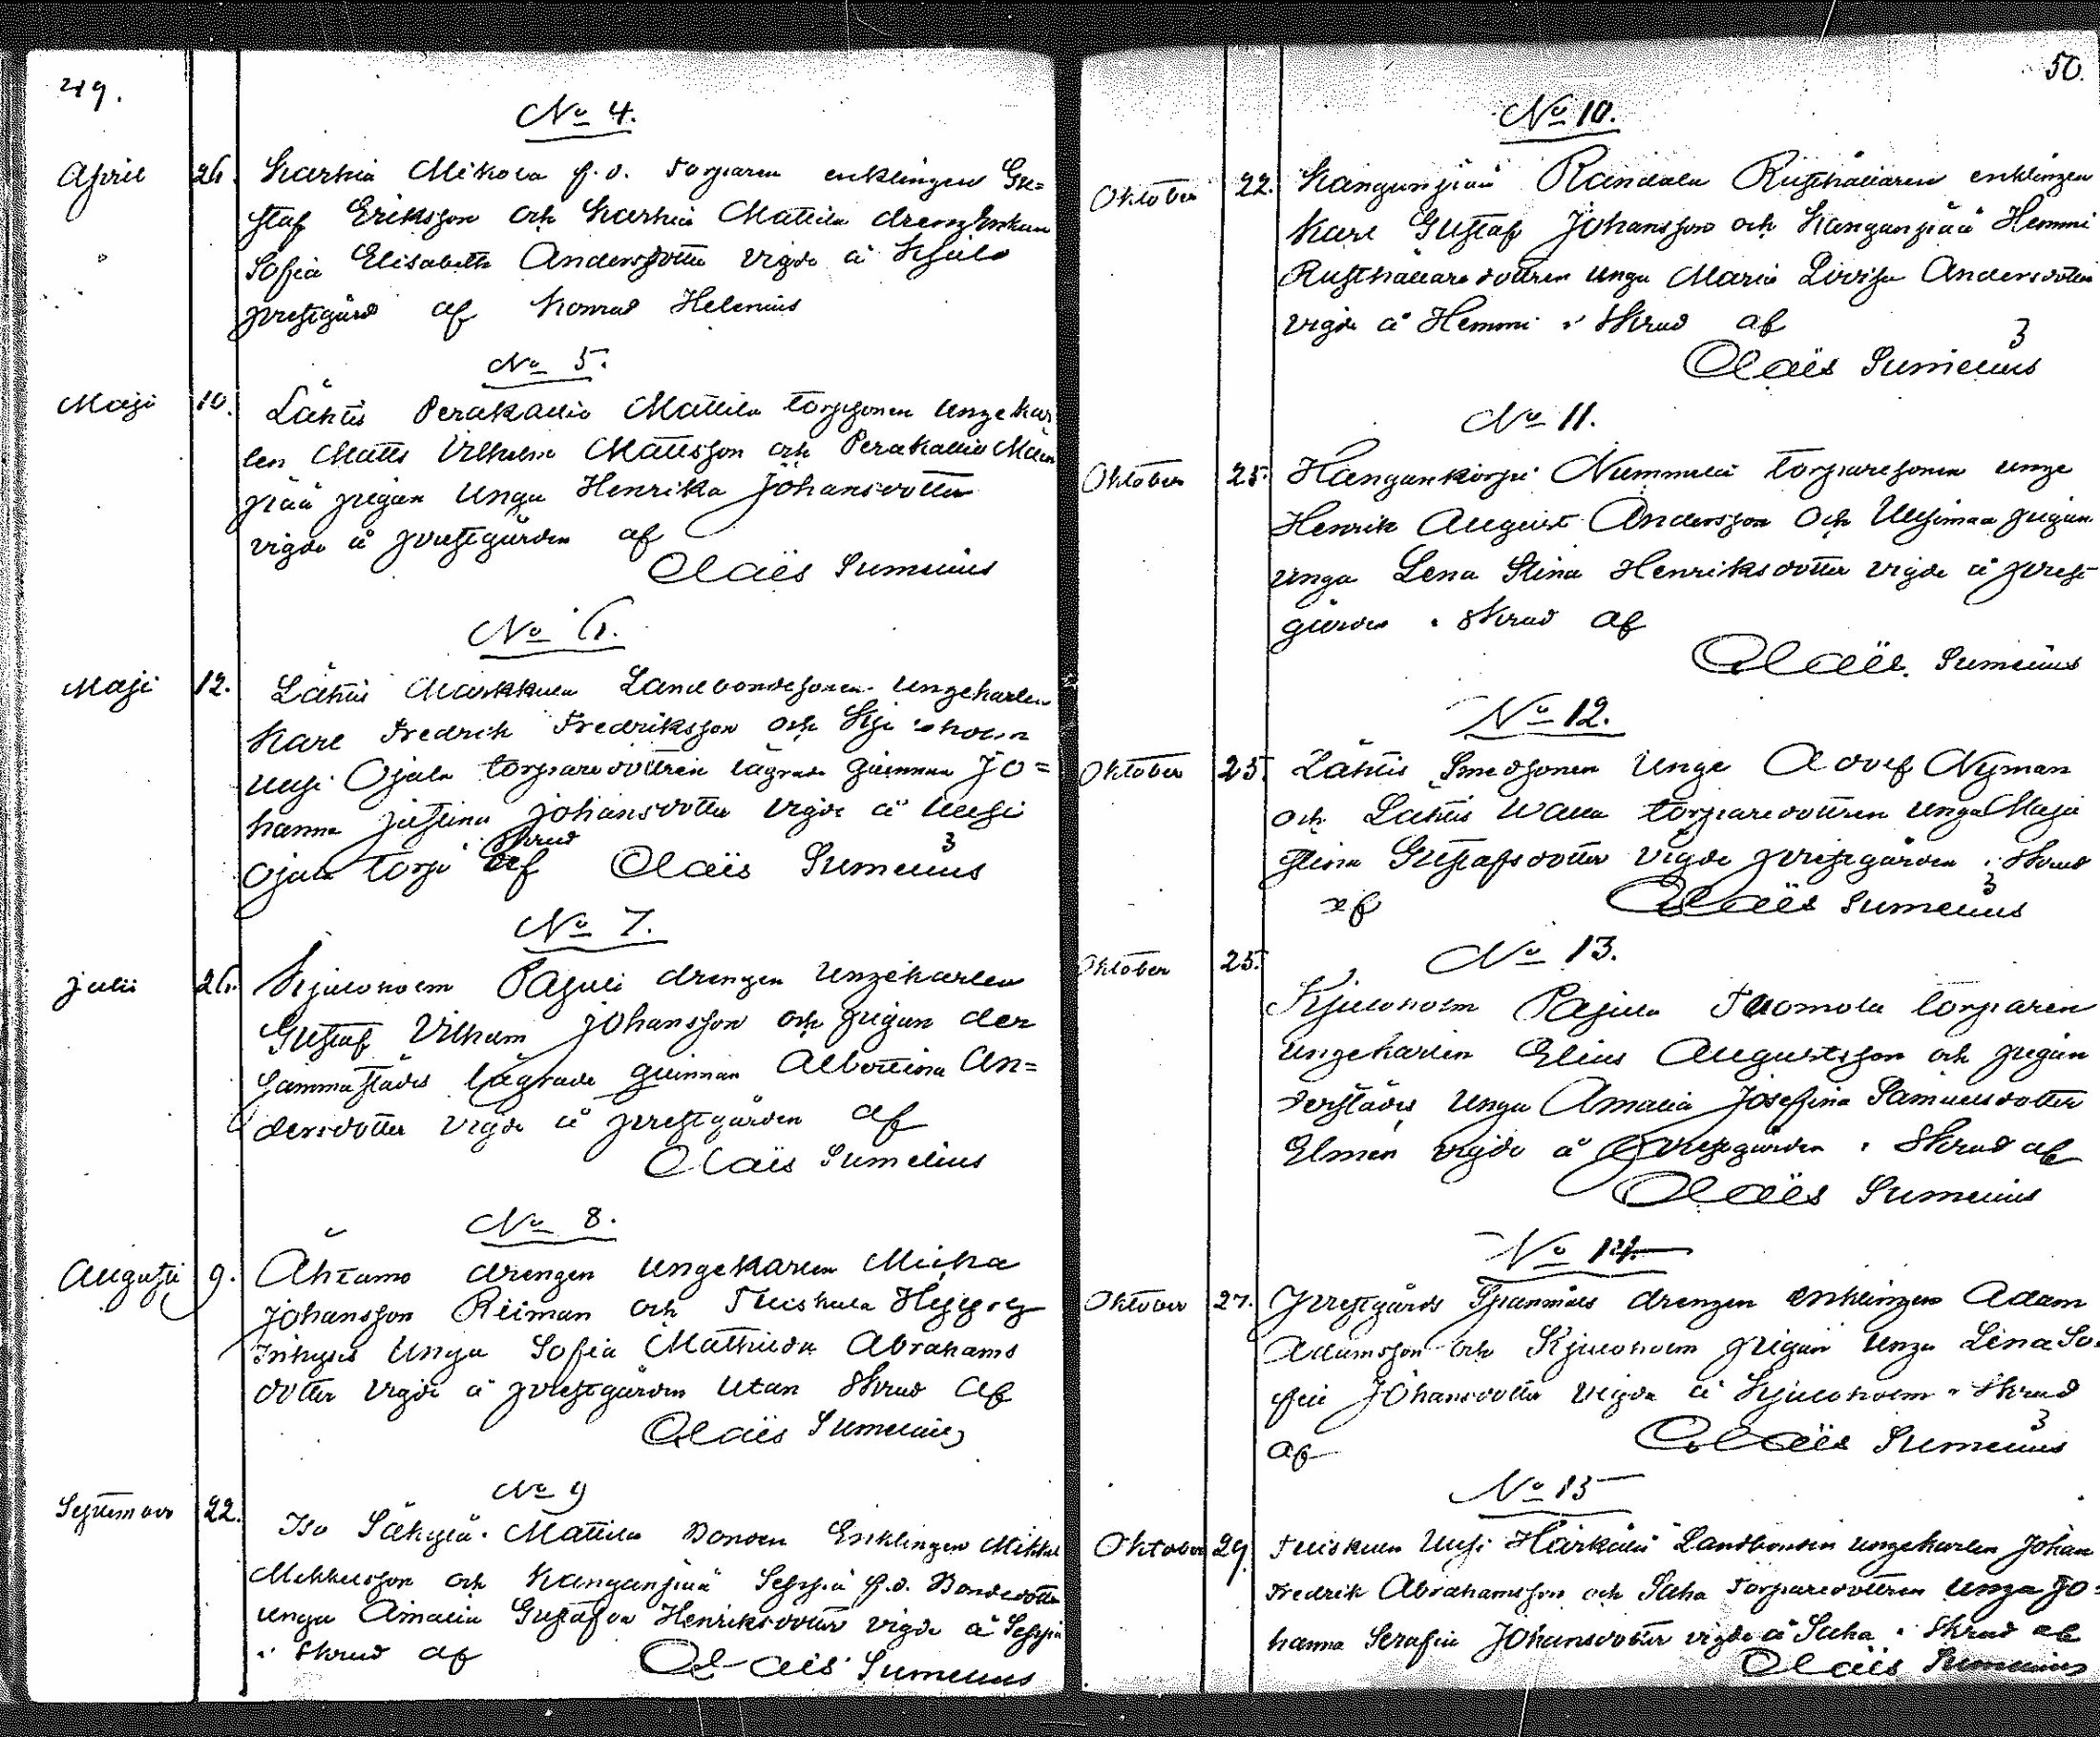 49.
No 4.
April 26. Karhia Mikola f.d. Torparen enklingen Gu=
staf Eriksson och Karhia Mattila drengenkan
Sofia Elisabeth Andersdotter vigde å Kjulo
prestgård af Konrad Helenius
No 5.
Maji 10. Lähtis Perakallio Mattila torpsonen Ungekar
len Matts Vilhelm Mattsson och Perakallio
pää pigan Unga Henrika Johansdotter
vigde å prestgården af
Claës Sumelius
No 6.
Maji 12. Lähtis Markkula Landbondesonen Ungekarlen
Karl Fredrik Fredriksson och Kjuloholm
Uusi Ojala torparedottren lägrade qvinnan Jo=
hanna Justina Johansdotter vigde å Uusi
Ojala torp i Skrud af Claës Sumelius
3
No 7.
Julii 26. Kjuloholm Pajula drengen Ungekarlen
Gustaf Vilhelm Johansson och pigan der
sammastädes lägrade qvinnan Albertina An=
dersdotter vigde å prestgården af
Claës Sumelius
No 8.
Augusti 9. Ahtamo drengen Ungekarlen Micha
Johansson Reiman och Tuiskula
Inhyses Unga Sofia Mathilda Abrahams
dotter vigde å prestgården utan Skrud af
Claës Sumelius
No 9
September 22. Iso Säkylä Mattila Bonden Enklingen Mikkel
Mikkelsson och Kanganpää Seppä f.d. Bondedotter
unga Amalia Gustafva Henriksdotter vigde å Seppä
i Skrud af Claës Sumelius
50.
No 10.
Oktober 22. Kanganpää Randala Rusthållaren enklingen
Karl Gustaf Johansson och Kanganpää Hemmi
Rusthållaredottren unga Maria Lovisa Andersdotter
vigde å Hemmi i Skrud af
3
Claës Sumelius
No 11.
Oktober 25. Kangankorpi Nummela torparesonen unge
Henrik August Andersson och Uusimaa pigan
unga Lena Stina Henriksdotter vigde å prest
gården i Skrud af
Claës Sumelius
No 12.
Oktober 25. Lähtis Smedsonen Unge Adolf Nyman
och Lähtis Walla torparedottren Unga Maja
Stina Gustafsdotter vigde prestgården i Skrud
af Claës Sumelius
3
No 13.
Oktober 25.
Kjuloholm Pajula Tuomola torparen
Ungekarlen Elius Augustsson och pigan
derstädes Unga Amalia Josefina Samuelsdotter
Elmén vigde å prestgården i Skrud af
Claës Sumelius
No 14.
Oktober 27. Prestgårds Spannmåls drengen Enklingen Adam
Adamsson och Kjuloholm pigan Unga Lena So=
fia Johansdotter vigde å Kjuloholm i Skrud
af Claës Sumelius
3
No 15
Oktober 29 Tuiskula Uusi Härkälä Landbonden ungekarlen Johan
Fredrik Abrahamsson och Suha Torparedottren Unga Jo=
hanna Serafia Johansdotter vigde å Suha i Skrud af
Claës Sumelius